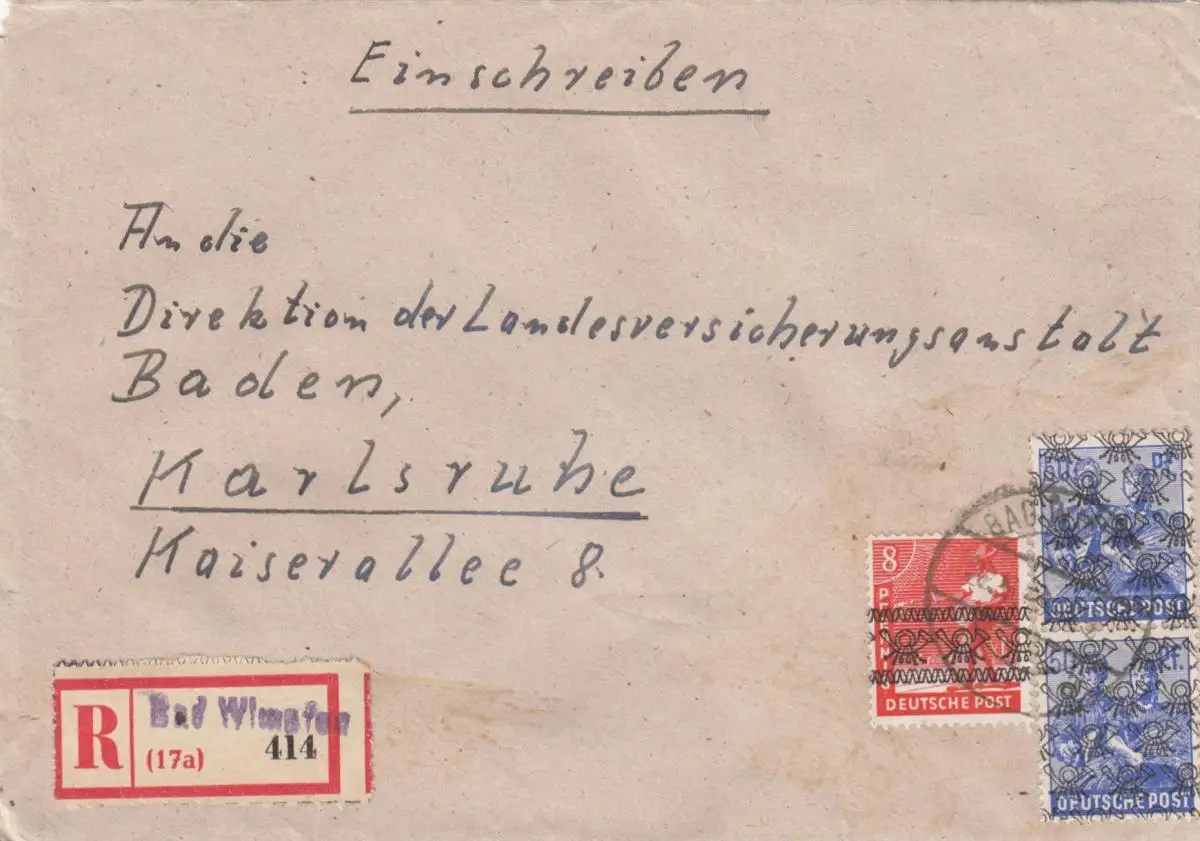 Einschreiben
An die
Direktion der Landesversicherungsanstalt
Baden,
Karlsruhe
Kaiserallee 8.
R
Bad Wimpfen
(17a) 414
8
PFENNIG
DEUTSCHE POST
BAD
50 Pf.
DEUTSCHE POST
50 Pf.
DEUTSCHE POST